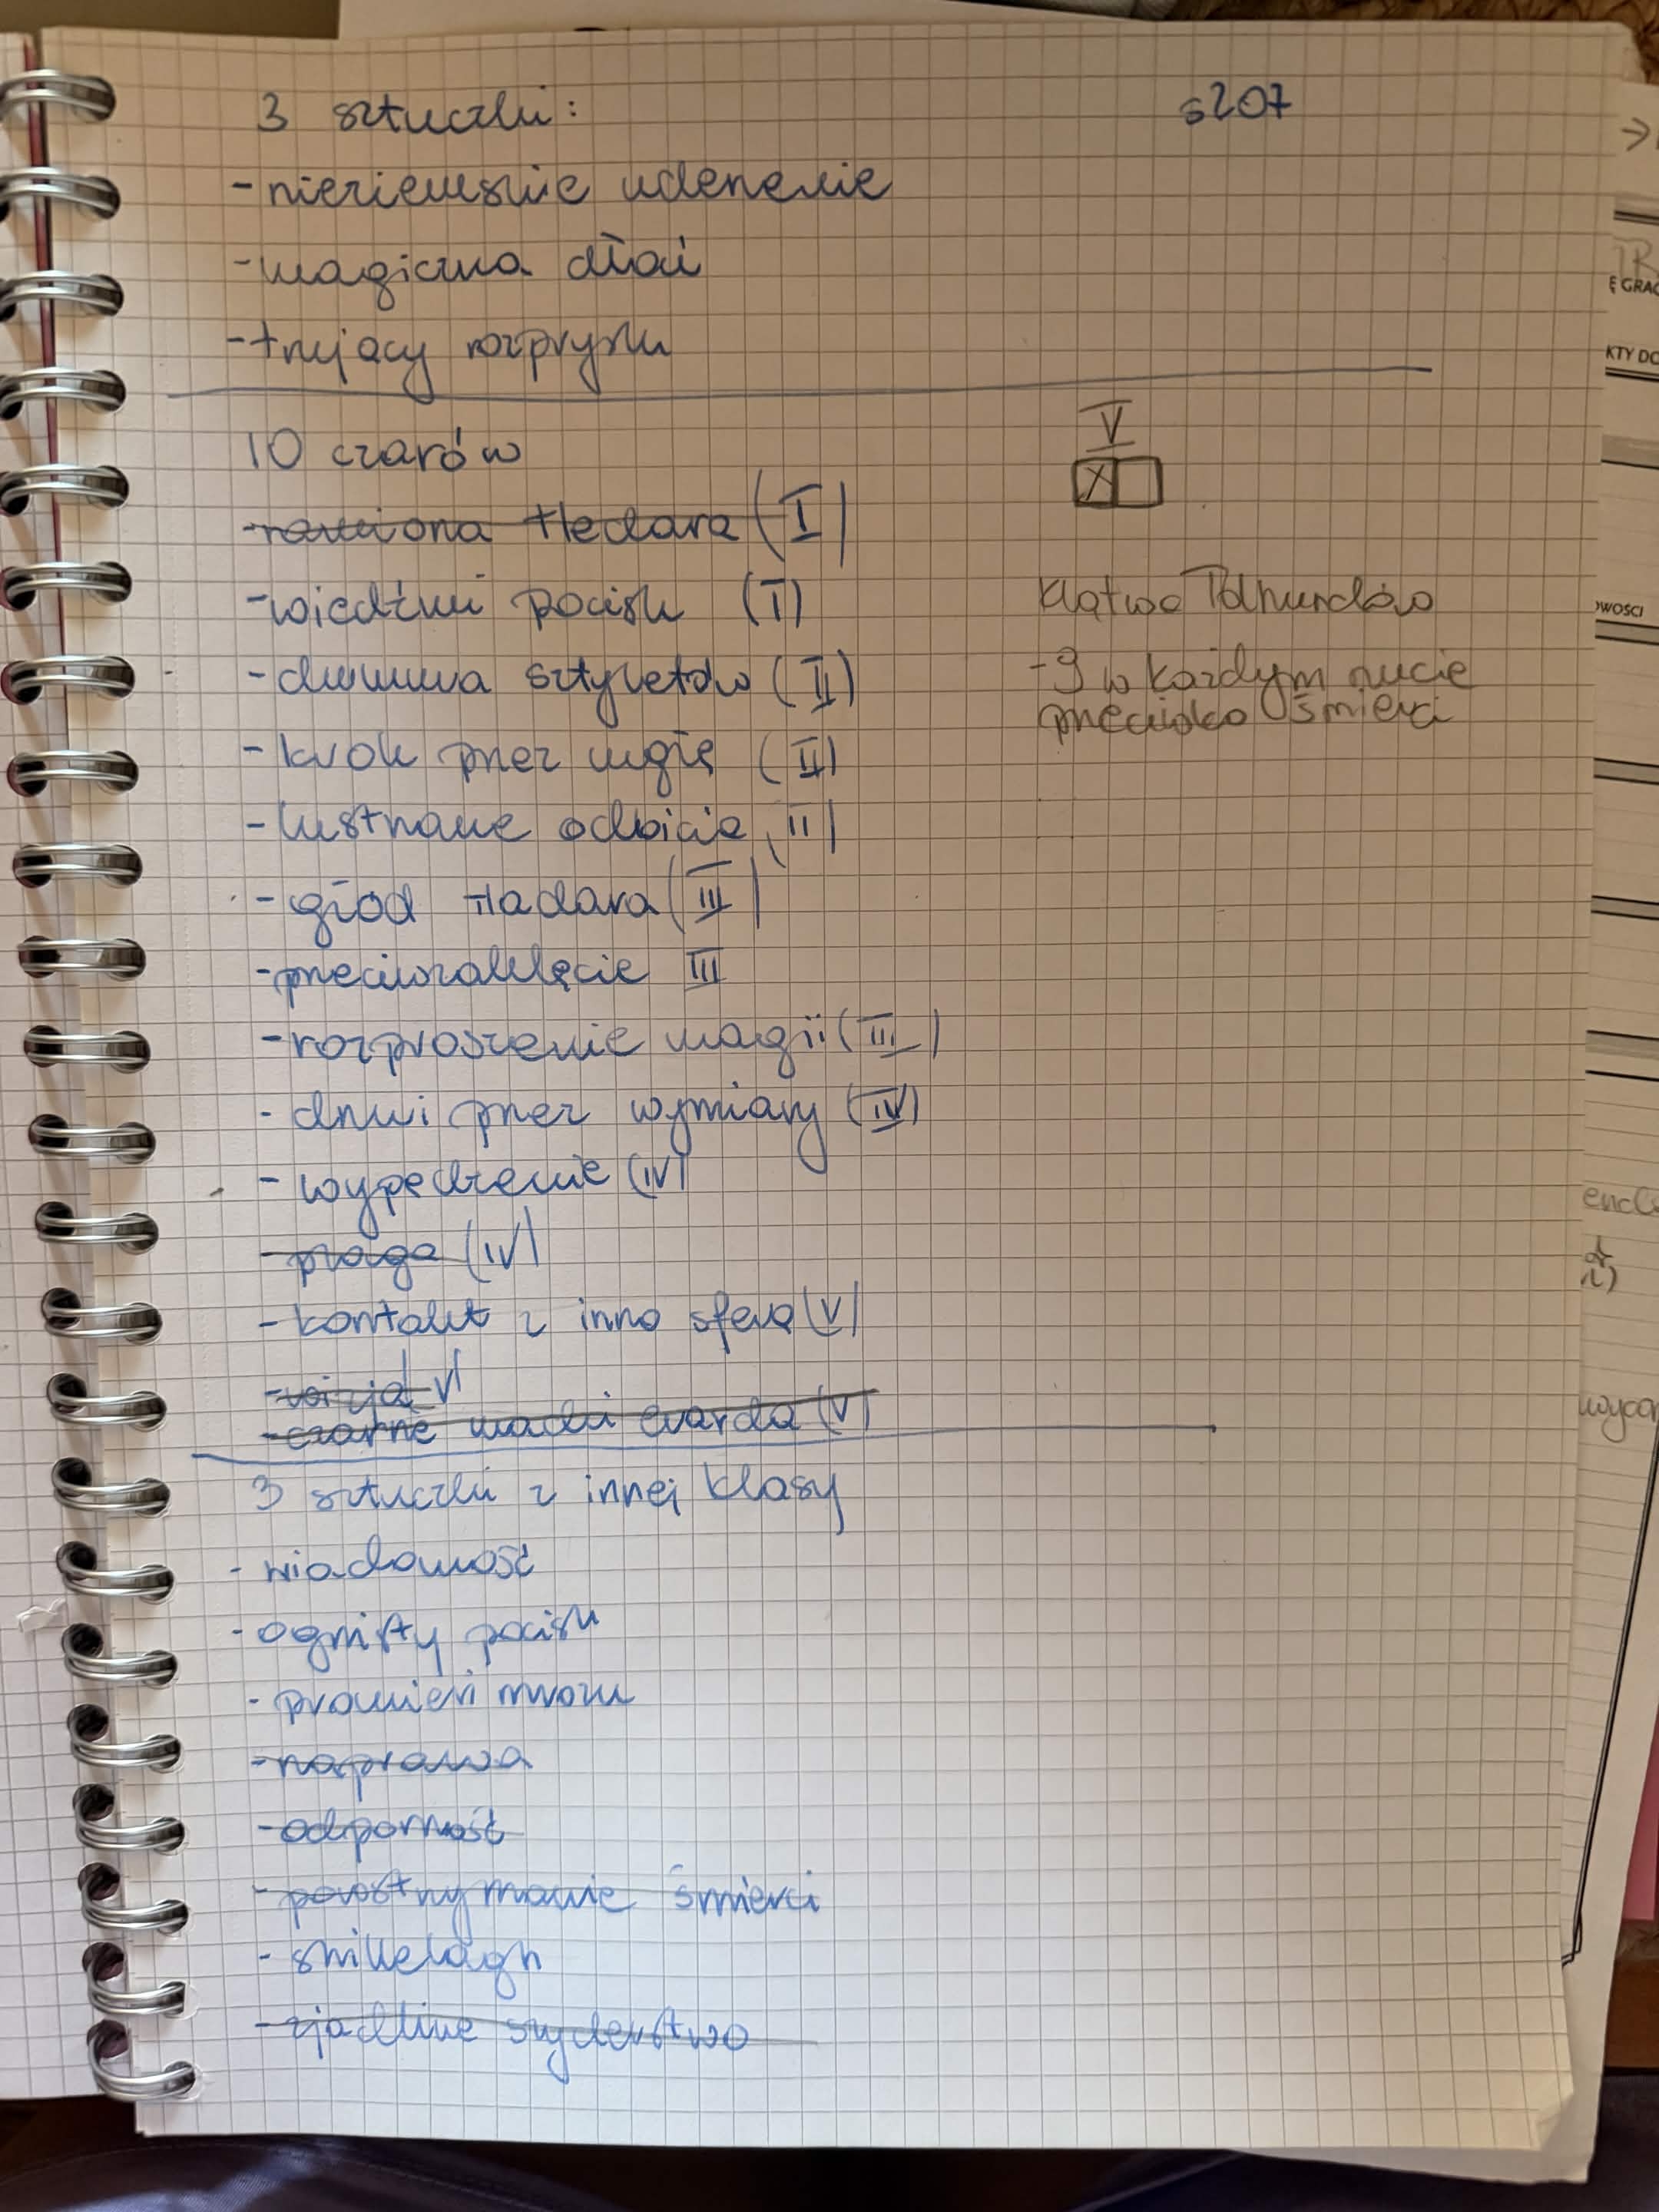 3 sztuczki: s207
- nieziemskie uderzenie
- magiczna dłoń
- trujący rozprysk
10 czarów
V
X
- ramiona Hadara (I)
- wiedźmi pocisk (I)
Klątwa Tolhurdów
- chmura sztyletów (II)
- 9 w każdym rzucie
przeciwko śmierci
- krok przez mgłę (II)
- lustrzane odbicie (II)
- głód Hadara (III)
- przeciwzaklęcie III
- rozproszenie magii (III)
- drzwi przez wymiary (IV)
- wypędzenie (IV)
- plaga (IV)
- kontakt z inną sferą (V)
- wizja V
- czarne macki evarda (V)
3 sztuczki z innej klasy
- wiadomość
- ognisty pocisk
- promień mrozu
- naprawa
- odporność
- powstrzymanie śmierci
- shillelagh
- zjadliwe szyderstwo
Ę GRAC
KTY DO
OWOSCI